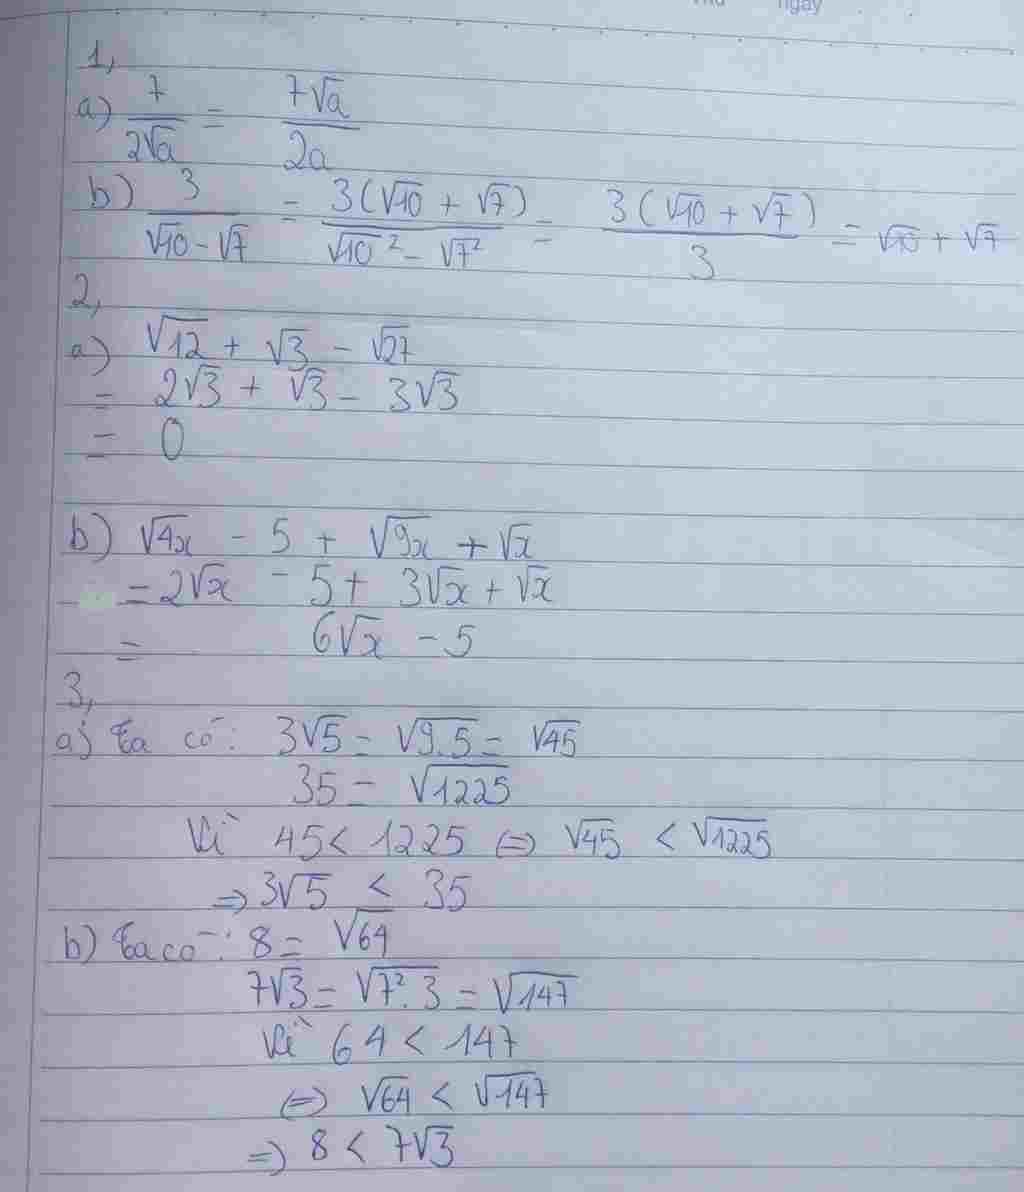 ngày
1,
a) 7/(2√a) = 7√a/(2a)
b) 3/(√10 - √7) = 3(√10 + √7)/(√10² - √7²) = 3(√10 + √7)/3 = √10 + √7
2,
a) √12 + √3 - √27
= 2√3 + √3 - 3√3
= 0
b) √4x - 5 + √9x + √x
= 2√x - 5 + 3√x + √x
= 6√x - 5
3,
a) Ta có: 3√5 = √9.5 = √45
35 = √1225
Vì 45 < 1225 ⇔ √45 < √1225
⇒ 3√5 < 35
b) Ta có: 8 = √64
7√3 = √7².3 = √147
Vì 64 < 147
⇔ √64 < √147
⇒ 8 < 7√3